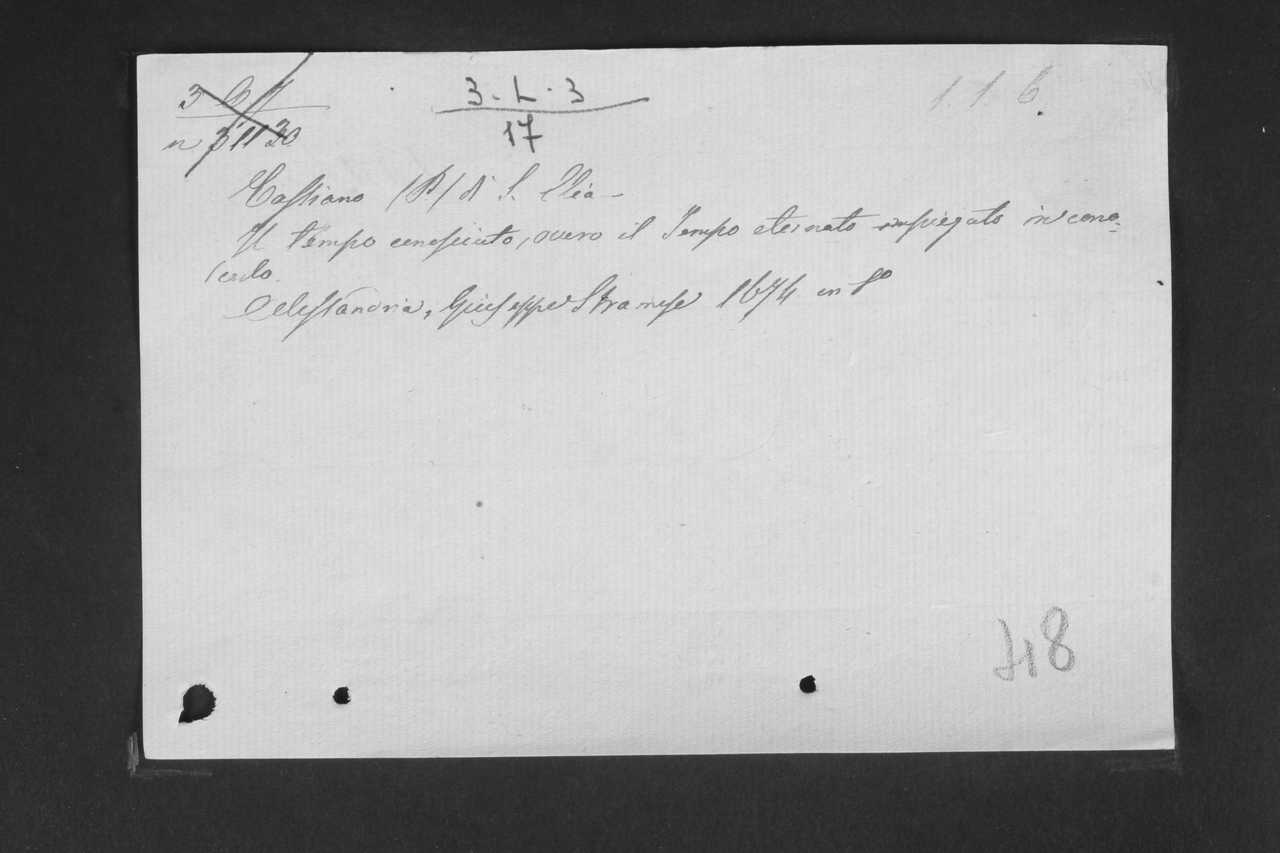 3-L-3
17
1.1.6.
Cassiano (P.) di S. Elia -
Il tempo conosciuto, overo il Tempo eternato impiegato in cono-
scerlo.
Alessandria, Giuseppe Stramese 1674 in 8º
748